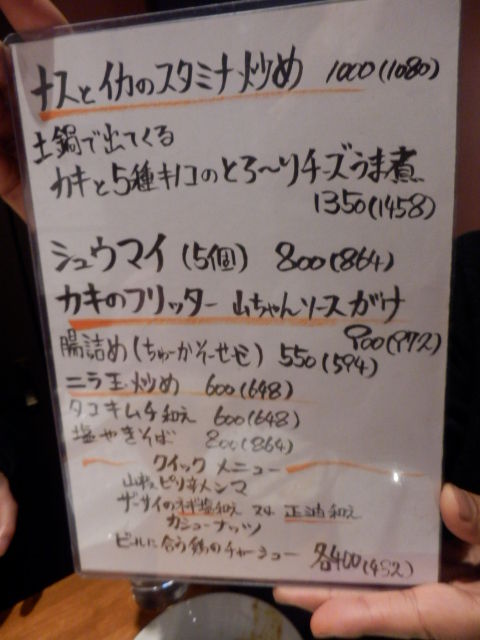 ナスとイカのスタミナ炒め 1000(1080)
土鍋で出てくる
カキと5種キノコのとろ〜りチーズうま煮
1350(1458)
シュウマイ (5個) 800(864)
カキのフリッター 山ちゃんソースがけ
900(972)
腸詰め(ちゅーかそーせぇじ) 550(594)
ニラ玉炒め 600(648)
タコキムチ和え 600(648)
塩やきそば 800(864)
クイックメニュー
ピリ辛メンマ
ザーサイの 塩和え 又は 正油和え
カシューナッツ
ビールに合う鶏のチャーシュー 各400(432)